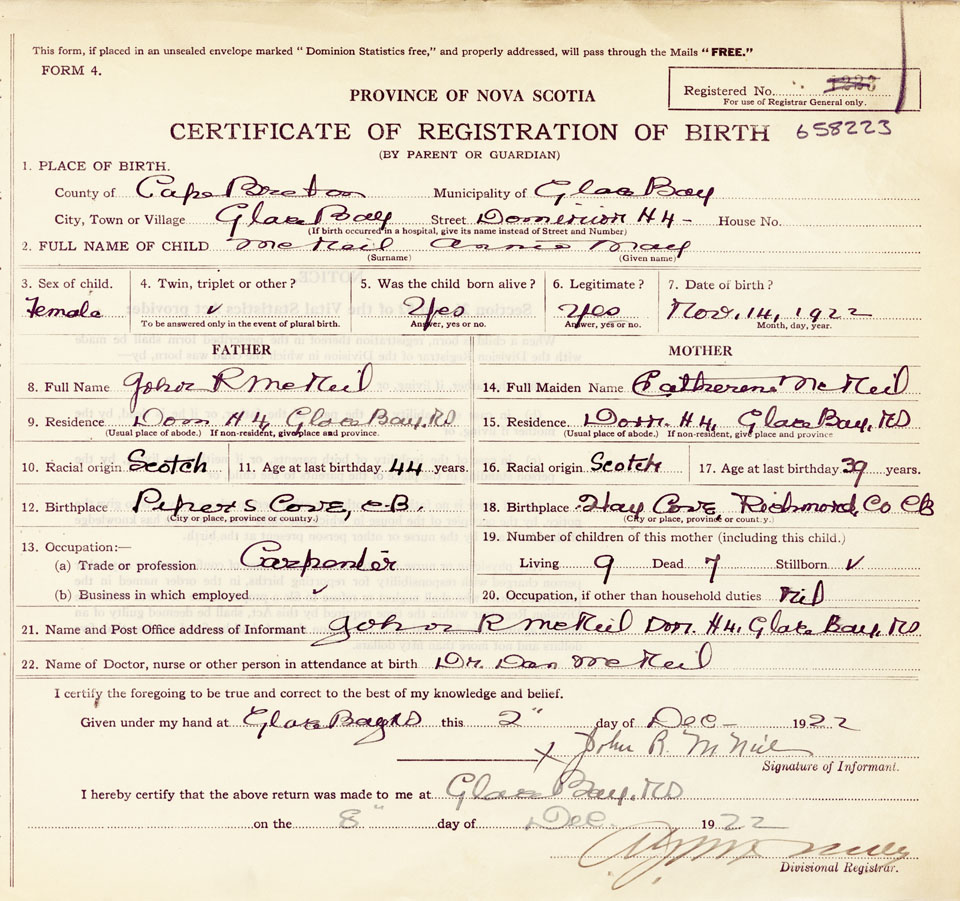 This form, if placed in an unsealed envelope marked "Dominion Statistics free," and properly addressed, will pass through the Mails "FREE."
FORM 4.
Registered No. 1223
For use of Registrar General only.
PROVINCE OF NOVA SCOTIA
CERTIFICATE OF REGISTRATION OF BIRTH 658223
(BY PARENT OR GUARDIAN)
1. PLACE OF BIRTH.
County of Cape Breton Municipality of Glace Bay
City, Town or Village Glace Bay Street Dominion #4 - House No.
(If birth occurred in a hospital, give its name instead of Street and Number)
2. FULL NAME OF CHILD McNeil Annie May
(Surname) (Given name)
3. Sex of child. 4. Twin, triplet or other? 5. Was the child born alive? 6. Legitimate? 7. Date of birth?
Female ✓ Yes Yes Nov. 14, 1922
To be answered only in the event of plural birth. Answer, yes or no. Answer, yes or no. Month, day, year.
FATHER MOTHER
8. Full Name John R McNeil 14. Full Maiden Name Catherene McNeil
9. Residence Dom #4, Glace Bay, NS 15. Residence Dom. #4, Glace Bay, NS
(Usual place of abode.) If non-resident, give place and province. (Usual place of abode.) If non-resident, give place and province
10. Racial origin Scotch 11. Age at last birthday 44 years. 16. Racial origin Scotch 17. Age at last birthday 39 years.
12. Birthplace Pipers Cove, C.B. 18. Birthplace Hay Cove Richmond, Co CB
(City or place, province or country.) (City or place, province or country.)
13. Occupation:— 19. Number of children of this mother (including this child.)
(a) Trade or profession Carpenter Living 9 Dead 7 Stillborn ✓
(b) Business in which employed ✓ 20. Occupation, if other than household duties Nil
21. Name and Post Office address of Informant John R McNeil Dom. #4, Glace Bay, NS
22. Name of Doctor, nurse or other person in attendance at birth Dr. Dan McNeil
I certify the foregoing to be true and correct to the best of my knowledge and belief.
Given under my hand at Glace Bay NS this 2" day of Dec - 1922
X John R. McNeil
Signature of Informant.
I hereby certify that the above return was made to me at Glace Bay, NS
on the 8" day of Dec. 1922
Divisional Registrar.